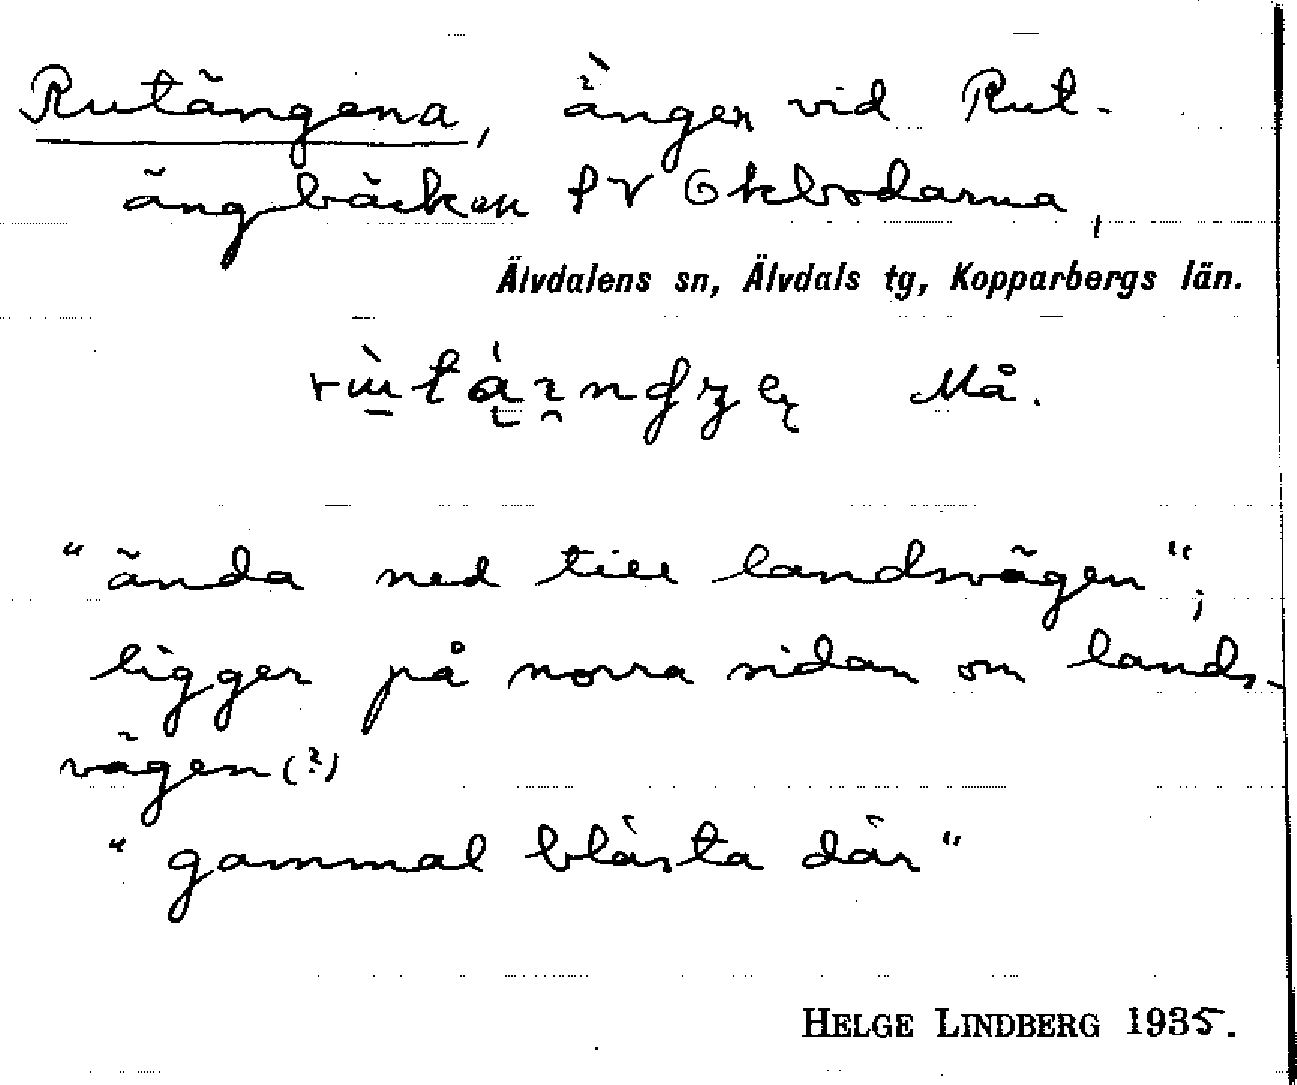 Rutängena, ängen vid Rut-
ängbäcken SV Okbodarna,
Älvdalens sn, Älvdals tg, Kopparbergs län.
Må.
"ända ned till landsvägen";
ligger på norra sidan om lands-
vägen (?)
"gammal blästa där"
HELGE LINDBERG 1935.